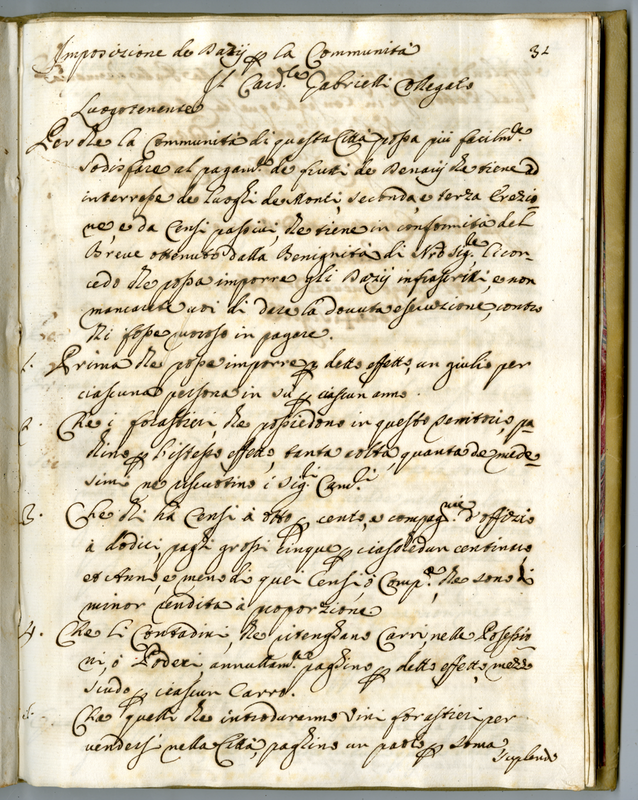 Imposizione de Dazij p la Communità
31
Il Card.le Gabrielli Legato
Luogotenente
Perche la Communità di questa Città possa più facilm.te
sodisfare al pagam.to de frutti de Denari che tiene ad
interesse de luoghi de Monti, seconda, e terza Erezio=
ne, e da Censi passivi, che tiene in conformità del
Breve ottenuto dalla Benignità di Nro Sig.re li con-
cedo che possa imporre gli Dazij infrascritti, e non
mancarete voi di dare la dovuta esecuzione, contro
chi fosse moroso in pagare.
1. Prima che possa imporre p detto effetto, un giulio per
ciascuna persona in sù p ciascun anno.
2. Che i forastieri, che possiedono in questo territorio, pa=
ghino p l'istesso effetto, tanta colta, quanta de mede=
simi ne riscuotino i Sig.ri Cam.li
3. Che chi hà Censi à otto p cento, e compag.nie d'offizio
à dodici, paghi grossi cinque p ciaschedun centinaio
et Anno, e meno di quei Censi, ò Comp.e che sono di
minor rendita à proporzione
4. Che li Contadini, che ritenghano Carri, nelle Possessio=
ni, ò Poderi annullam.te paghino p detto effetto, mezzo
scudo p ciascun Carro.
Che quelli che introduranno Vini forastieri per
vendersi nella Città, paghino un paolo p soma,